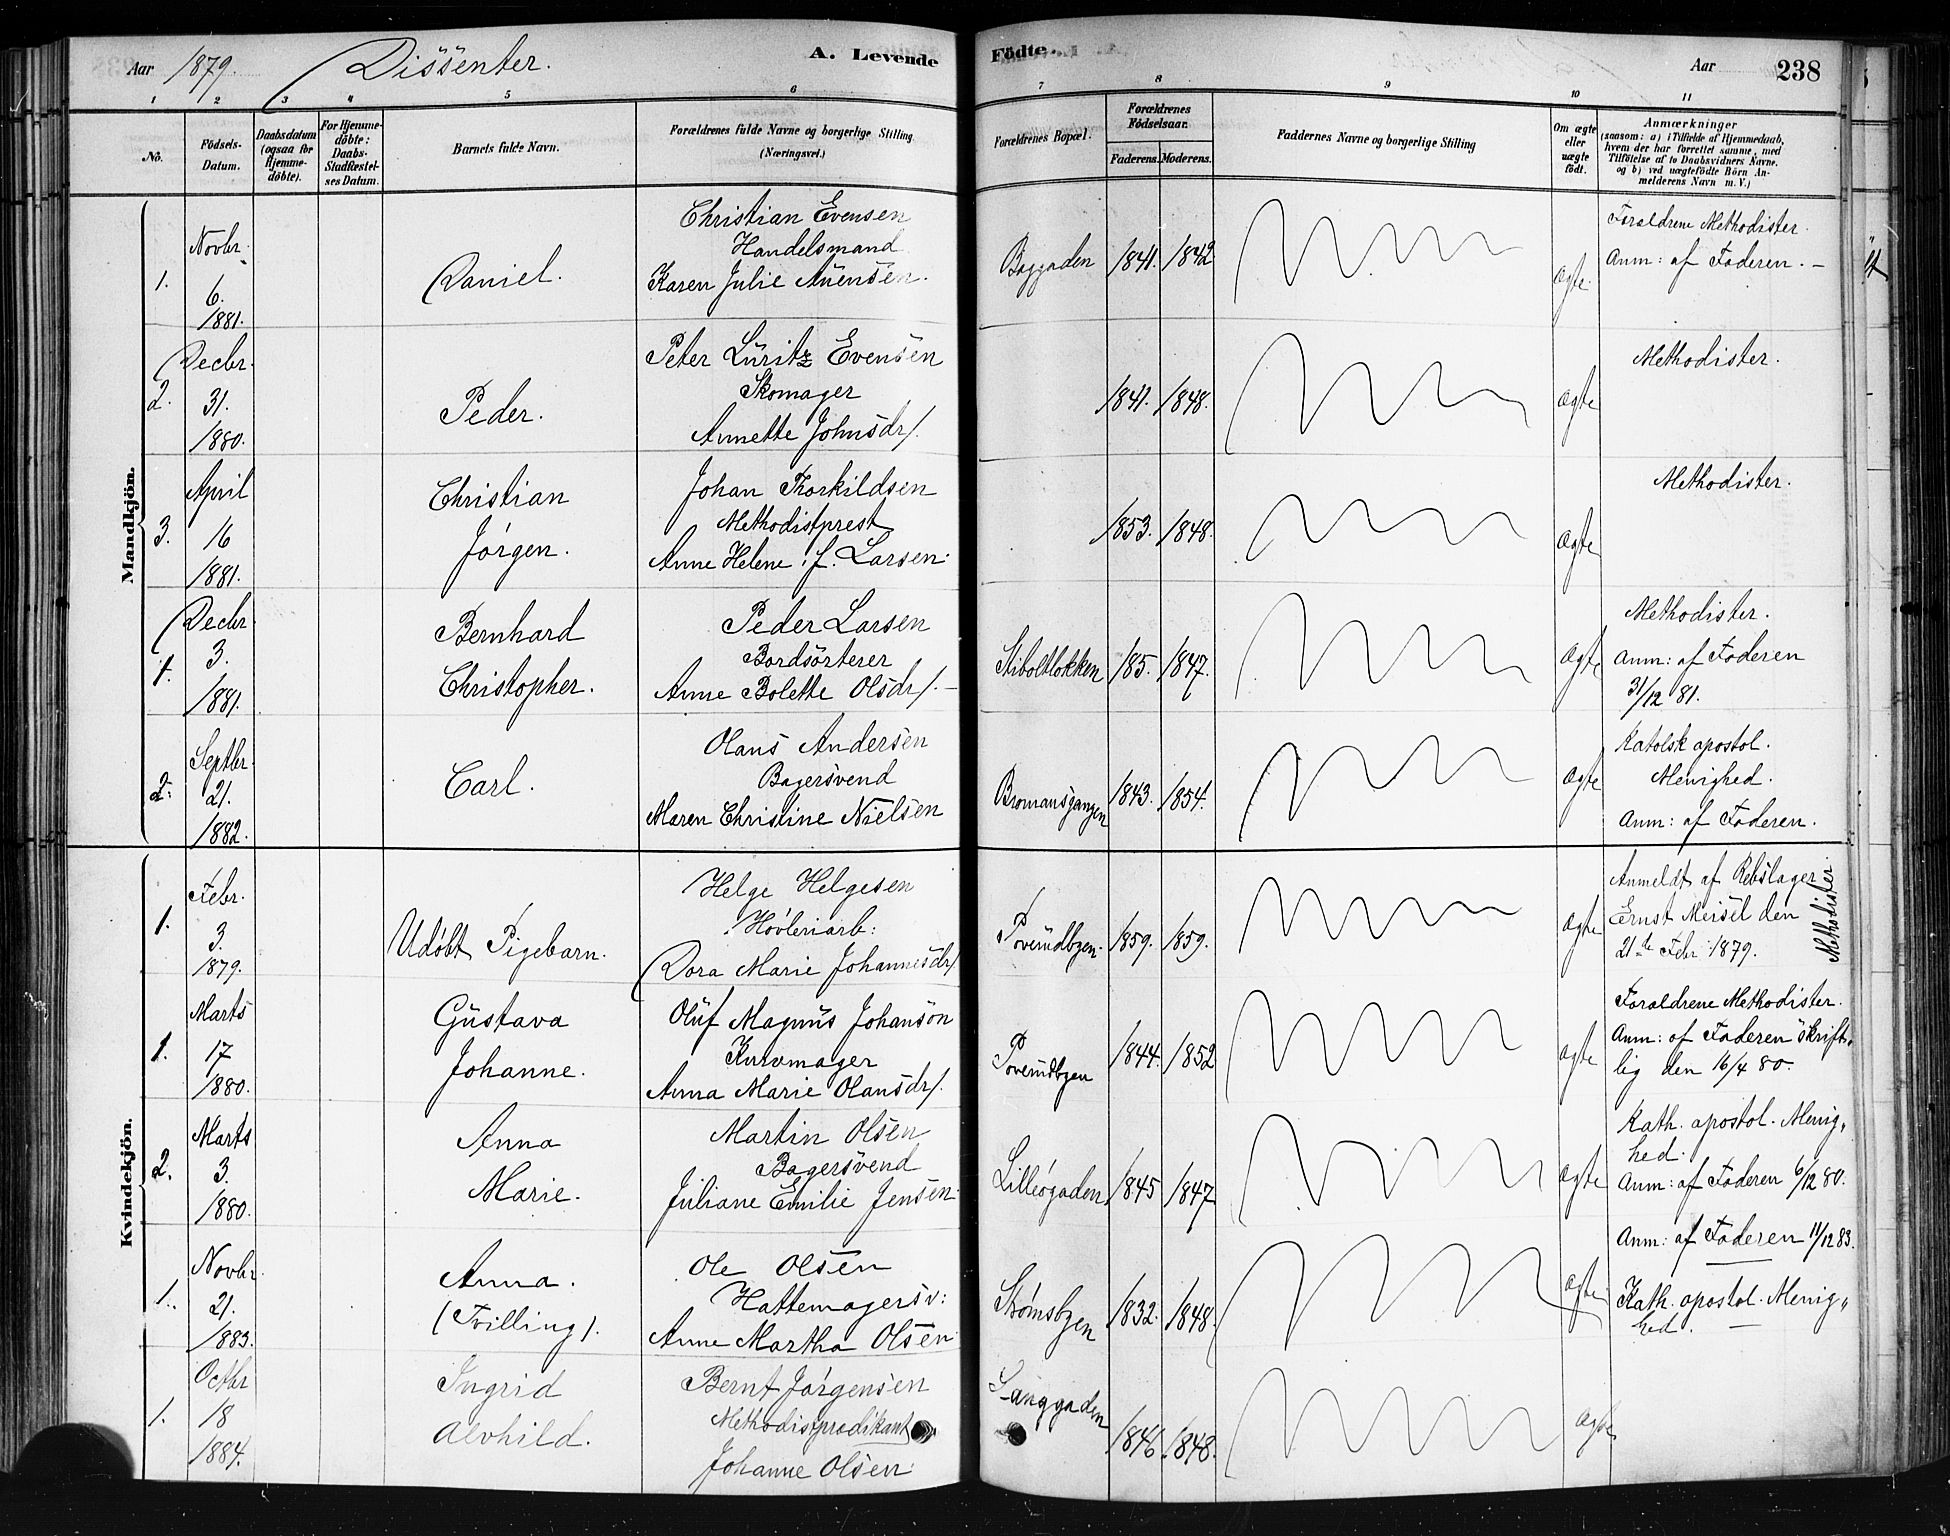 Aar 1879. Dissenter. A. Levende Födte. Aar 238
1 2 3 4 5 6 7 8 9 10 11
No.
Födsels-Datum.
Daabsdatum (ogsaa for Hjemmedöbte).
For Hjemmedöbte: Daabs-Stadfæstelses Datum.
Barnets fulde Navn.
Forældrenes fulde Navne og borgerlige Stilling (Næringsvei.)
Forældrenes Bopæl.
Forældrenes Födselsaar.
Faderens. Moderens.
Faddernes Navne og borgerlige Stilling
Om ægte eller uægte födt.
Anmærkninger
(saasom: a) i Tilfælde af Hjemmedaab,
hvem der har forrettet samme, med
Tilföielse af to Daabsvidners Navne.
og b) ved uægtefödte Börn An-
melderens Navn m. V.)
Mandkjön.
1.
Novbr.
6.
1881.
Daniel.
Christian Evensen
Handelsmand
Karen Julie
Baggaden
1841. 1842
Ægte.
Foraldrene Methodister.
Anm: af Faderen. –
2.
Decbr.
31.
1880.
Peder.
Peter Lüritz Evensen
Skomager
Annette Johnsdr/.
1841. 1848.
Ægte
Methodister.
3.
April
16
1881.
Christian
Jörgen.
Johan Thorkildsen
Methodistprest
Anne Helene f. Larsen.
1853. 1848.
Ægte
Methodister.
1.
Decbr
3.
1881.
Bernhard
Christopher.
Peder Larsen
Bordsörterer
Anne Bolette Olsdr/. –
Stiboltløkken
185. 1847.
Ægte
Methodister.
Anm: af Faderen
31/12 81.
2.
Septbr.
21.
1882.
Carl.
Olaus Andersen
Bagersvend
Maren Christine Nielsen
Bromansgangen
1843. 1854.
Ægte
Katolsk apostol.
Menighed.
Anm: af Faderen.
Kvindekjön.
1.
Febr.
3.
1879.
Udöbt Pigebarn.
Helge Helgesen
Hövleriarb:
Dora Marie Johannesdr/.
Poverüdbgen.
1859. 1859.
Ægte
Anmeldt af Rebslager
Ernst Meisel den
21de Febr 1879.
Methodister
1.
Marts
17
1880.
Güstava
Johanne.
Olüf Magnüs Johanson
Kurvmager
Anna Marie Olausdr/.
Poverüdbgen
1844. 1852
Ægte
Foraldrene Methodister.
Anm: af Faderen skrift-
lig den 16/4 80.
2.
Marts
3.
1880.
Anna
Marie.
Martin Olsen
Bagersvend
Juliane Emilie Jensen
Lilleögaden
1845 1847
Ægte
Kath. apostol. Menig-
hed.
Anm: af Faderen 6/12 80.
1.
Novbr.
21.
1883.
Anna.
(Tvilling).
Ole Olsen
Hattemagersv:
Anne Martha Olsen
Strömsbgen
1832. 1848.
Ægte
Anm: af Faderen 11/12 83.
Kath. apostol. Menig-
hed. –
1.
Octbr
18
1884.
Ingrid
Alvhild.
Bernt Jörgensen
Methodistpredikant
Johanne Olsen
Langgaden
1846 1848.
Ægte